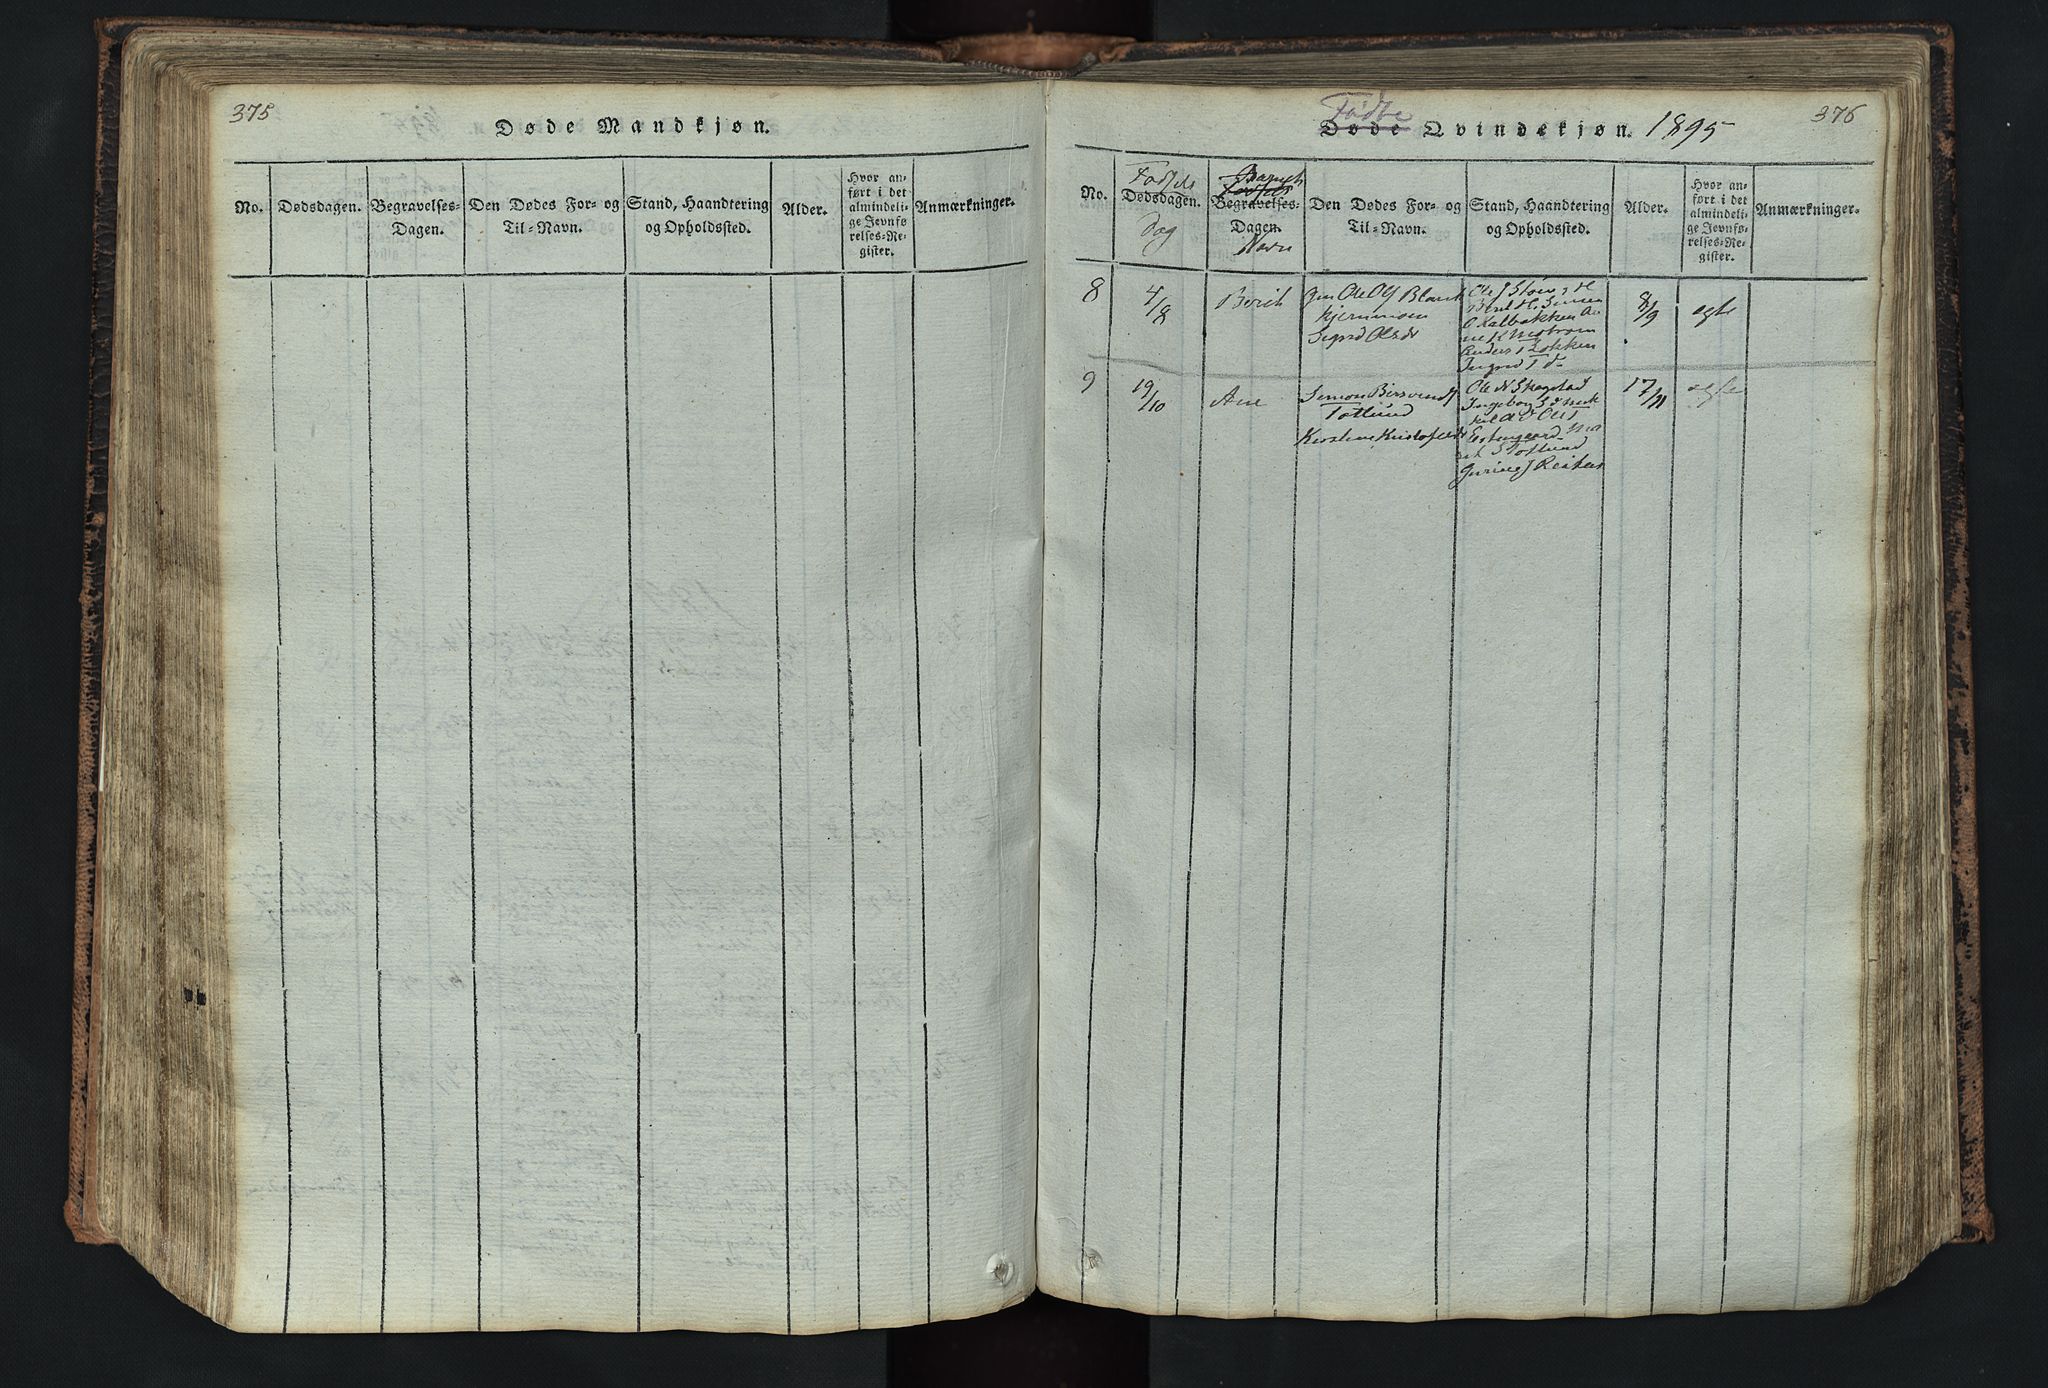 375
Døde Mandkjøn.
No.
Dødsdagen.
Begravelses-
Dagen.
Den Dødes For- og
Til-Navn.
Stand, Haandtering
og Opholdssted.
Alder.
Hvor an-
ført i det
almindeli-
ge Jevnfø-
relses-Re-
gister.
Anmærkninger.
376
Fødte
Døde Qvindekjøn. 1895
No.
Fødsels
Dødsdagen.
dag
Barnets
Begravelses-
Dagen.
Navn
Den Dødes For- og
Til-Navn.
Stand, Haandtering
og Opholdssted.
Alder.
Hvor an-
ført i det
almindeli-
ge Jevnfø-
relses-Re-
gister.
Anmærkninger.
8
4/8
Berit
Ole Ols Blank
kjernmoen
Sigrid Olsdt
Ole J Stoen
Kalbækken
Anders Løkken
Ingrid
8/9
egte
9
19/10
Ane
Simen
Totlund
Kirstine Kristofersdt
Ole N Skogstad
Ingebor
Estengaard
Totlund
Reiten
17/11
egte